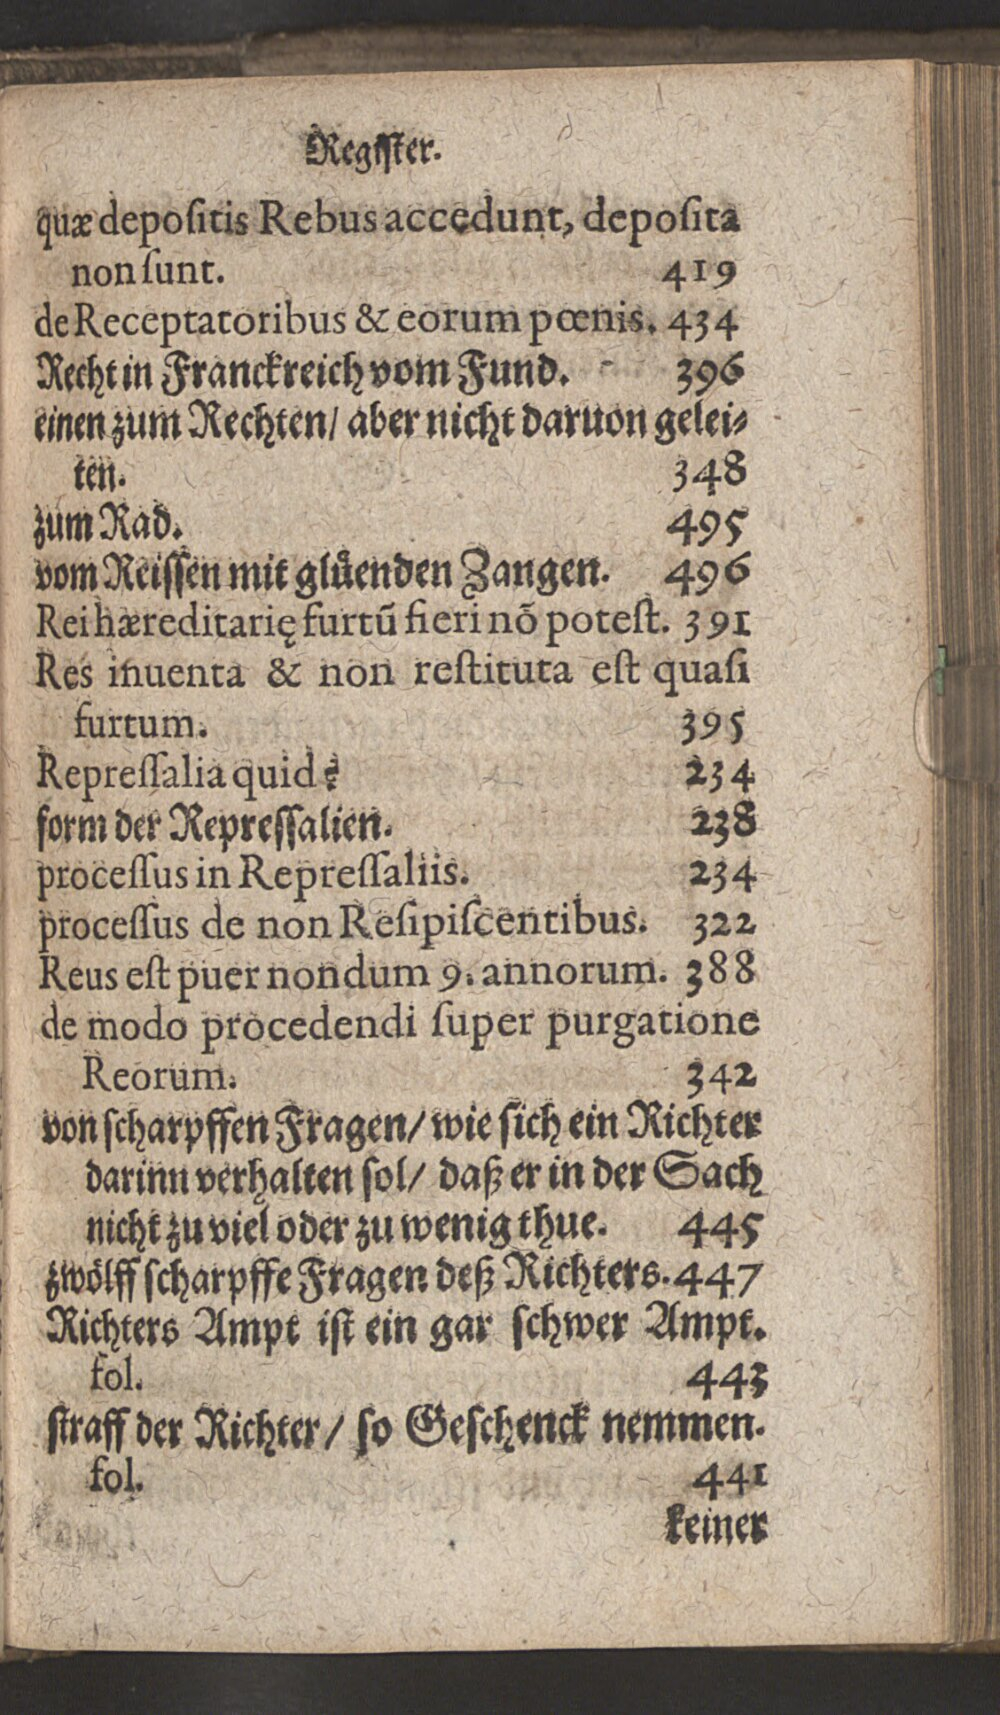 Register.
quæ depoſitis Rebus accedunt, depoſita
non ſunt. 419
de Receptatoribus & eorum pœnis. 434
Recht in Franckreich vom Fund. 396
einen zum Rechten/ aber nicht daruon gelei⸗
ten. 348
zum Rad. 495
vom Reiſſen mit glüenden Zangen. 496
Rei hæreditarię furtū fieri nō poteſt. 391
Res inuenta & non reſtituta eſt quaſi
furtum. 395
Repreſſalia quid? 234
form der Repreſſalien. 238
proceſſus in Repreſſaliis. 234
proceſſus de non Reſipiſcentibus. 322
Reus eſt puer nondum 9. annorum. 388
de modo procedendi ſuper purgatione
Reorum. 342
von ſcharpffen Fragen/ wie ſich ein Richter
darinn verhalten ſol/ daß er in der Sach
nicht zu viel oder zu wenig thue. 445
zwölff ſcharpffe Fragen deß Richters. 447
Richters Ampt iſt ein gar ſchwer Ampt.
fol. 443
ſtraff der Richter/ ſo Geſchenck nemmen.
fol. 441
keiner